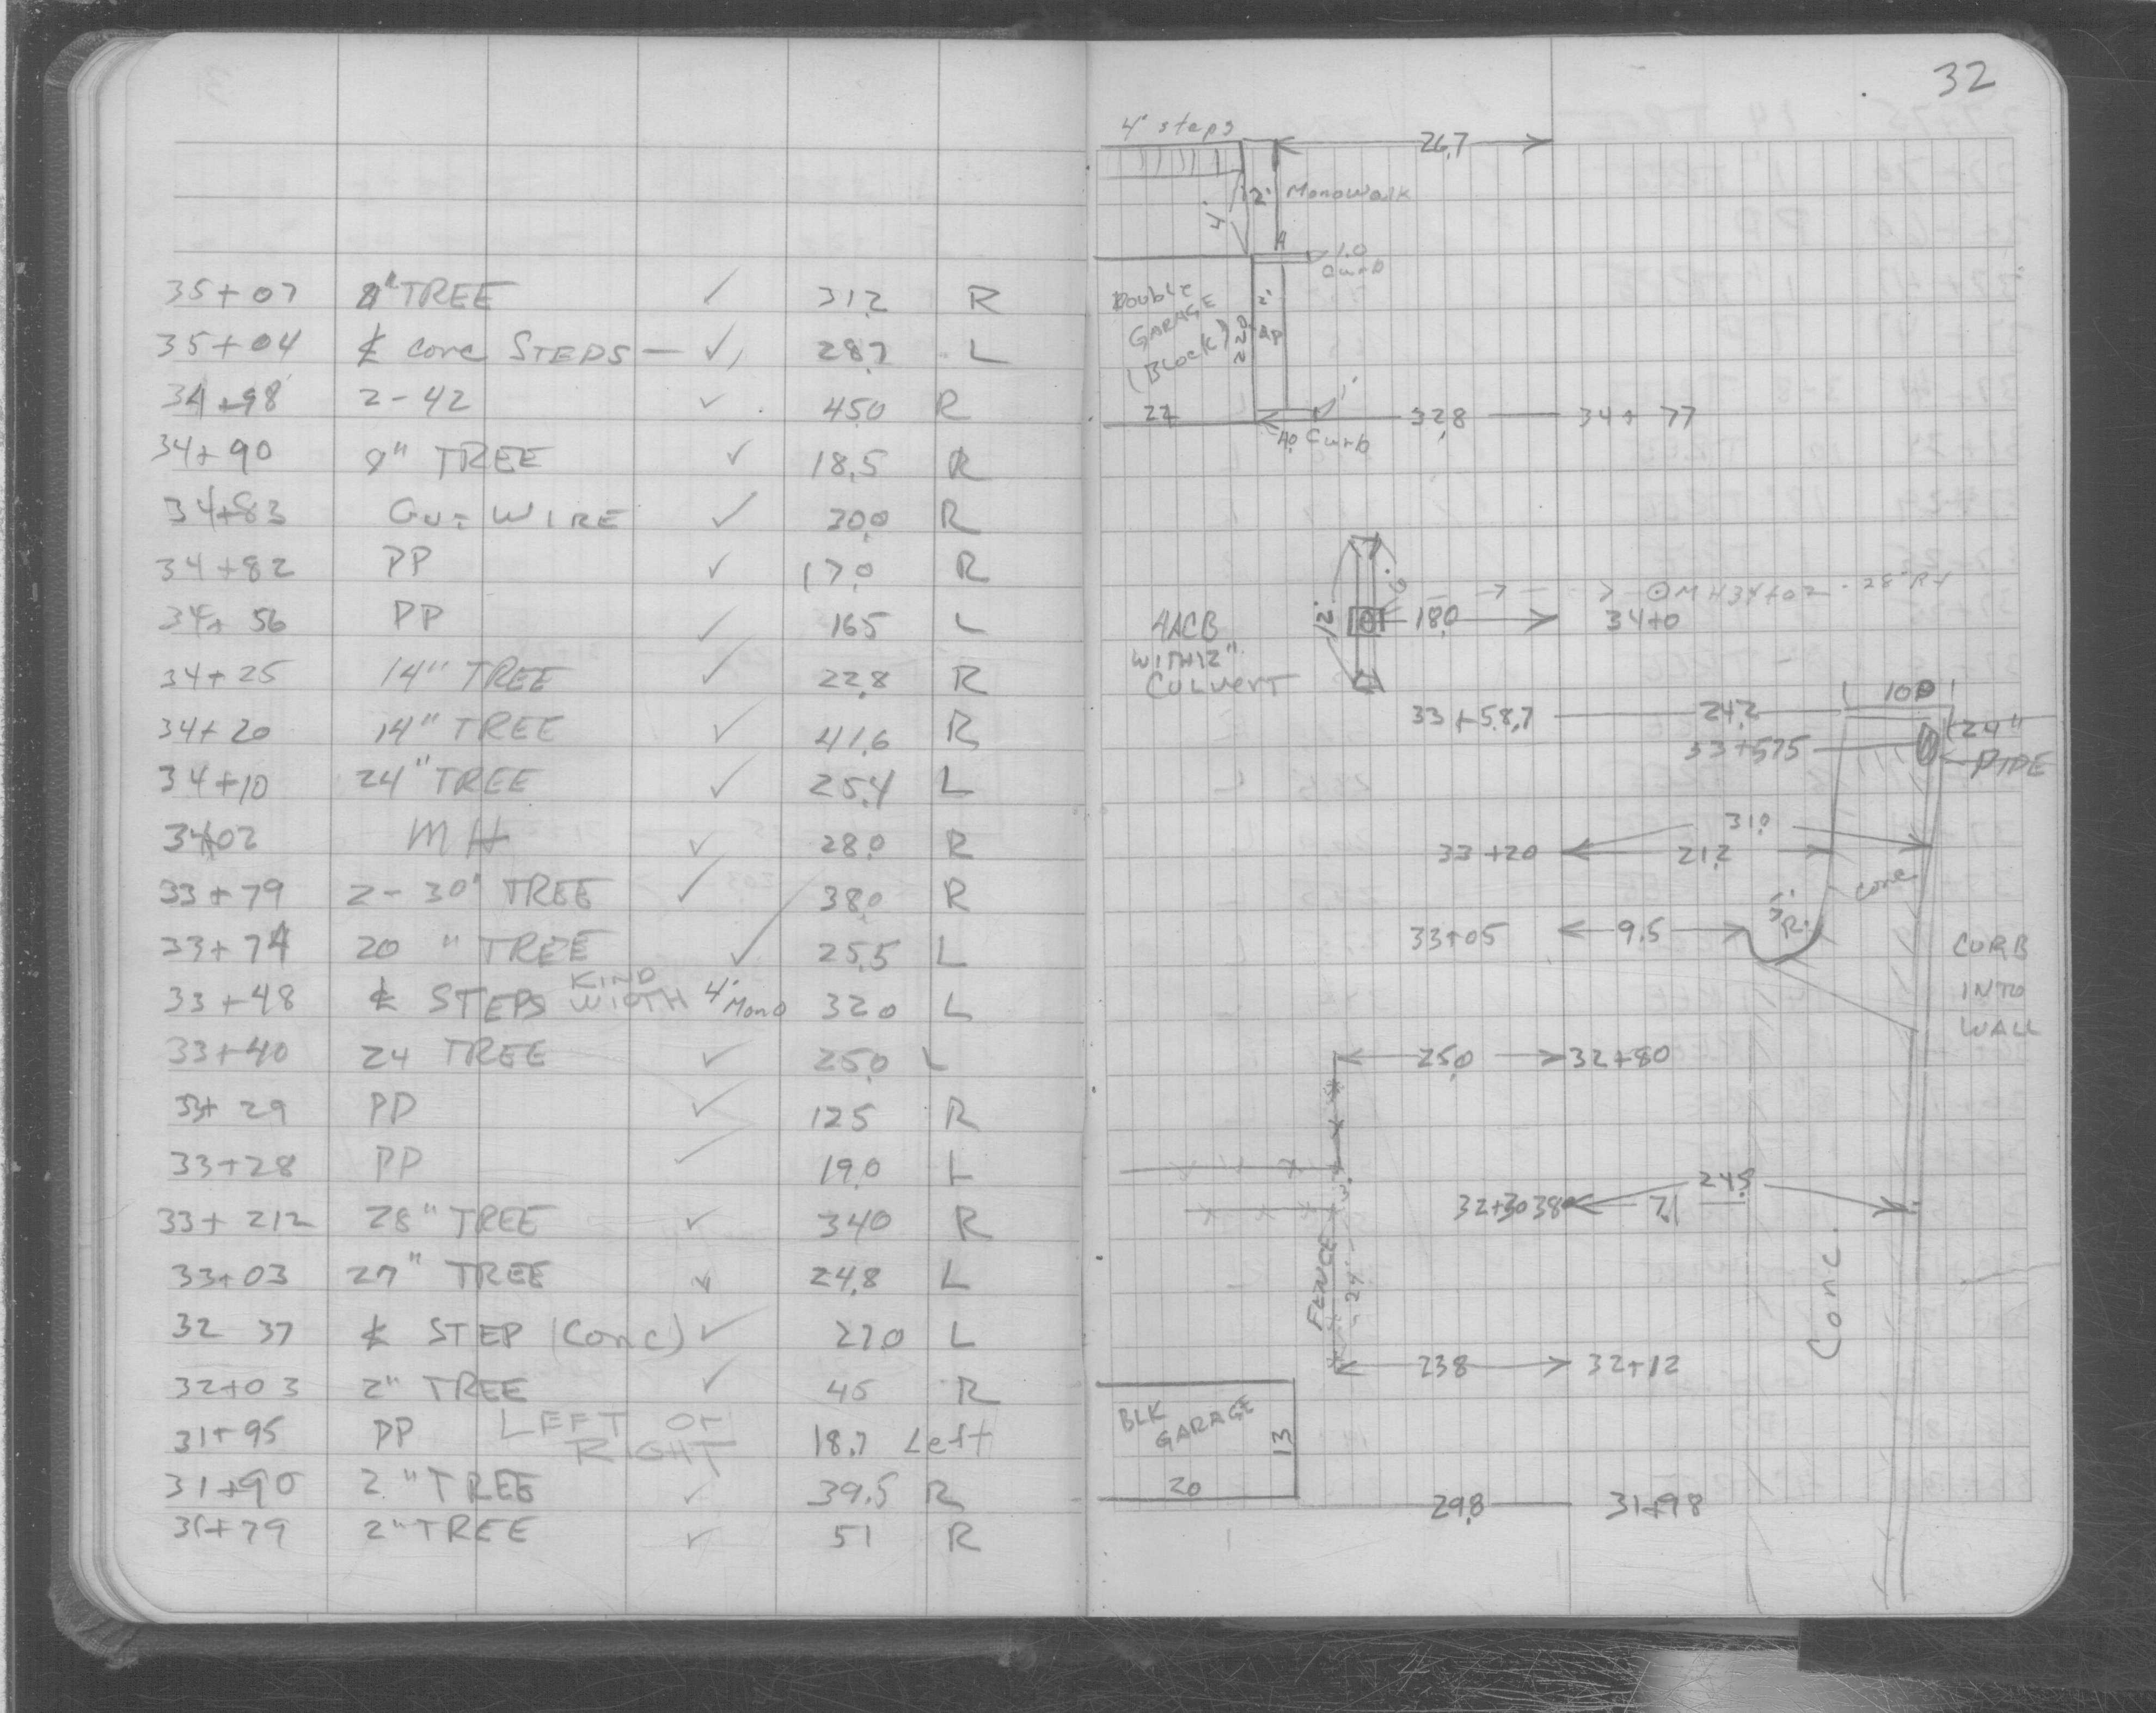 35+07 8" TREE ✓ 31.2 R
35+04 ℄ conc STEPS — ✓ 28.7 L
34+98 2-42 ✓ 45.0 R
34+90 8" TREE ✓ 18.5 R
34+83 GUY WIRE ✓ 30.0 R
34+82 PP ✓ 17.0 R
34+56 PP ✓ 16.5 L
34+25 14" TREE ✓ 22.8 R
34+20 14" TREE ✓ 41.6 R
34+10 24" TREE ✓ 25.4 L
34+02 MH ✓ 28.0 R
33+79 2-30" TREE ✓ 38.0 R
33+74 20" TREE ✓ 25.5 L
33+48 ℄ STEPS KIND WIDTH 4' Mono 32.0 L
33+40 24 TREE ✓ 25.0 L
33+29 PP ✓ 12.5 R
33+28 PP ✓ 19.0 L
33+21.2 28" TREE ✓ 34.0 R
33+03 27" TREE ✓ 24.8 L
32 37 ℄ STEP (Conc) ✓ 27.0 L
32+03 2" TREE ✓ 45 R
31+95 PP LEFT or RIGHT 18.7 Left
31+90 2" TREE ✓ 39.5 R
31+79 2" TREE ✓ 51 R
32
4' steps 26.7
4' 2' Monowalk
1.0
Curb
Double
GARAGE
(Block)
22.0
2'
AP
1'
22 32.8 34+77
Curb
MH 34+02 - 28' Rt
12' 18.0 34+0
WITH 12"
CULVERT
10.0
33+58.7 24.2
24"
33+57.5
PIPE
31.0
33+20 21.2
conc
5' R.
33+05 9.5
CURB
INTO
WALL
25.0 32+80
24.5
32+30 7.1
FENCE
24'
Conc.
23.8 32+12
BLK
GARAGE
13
20
29.8 31+98